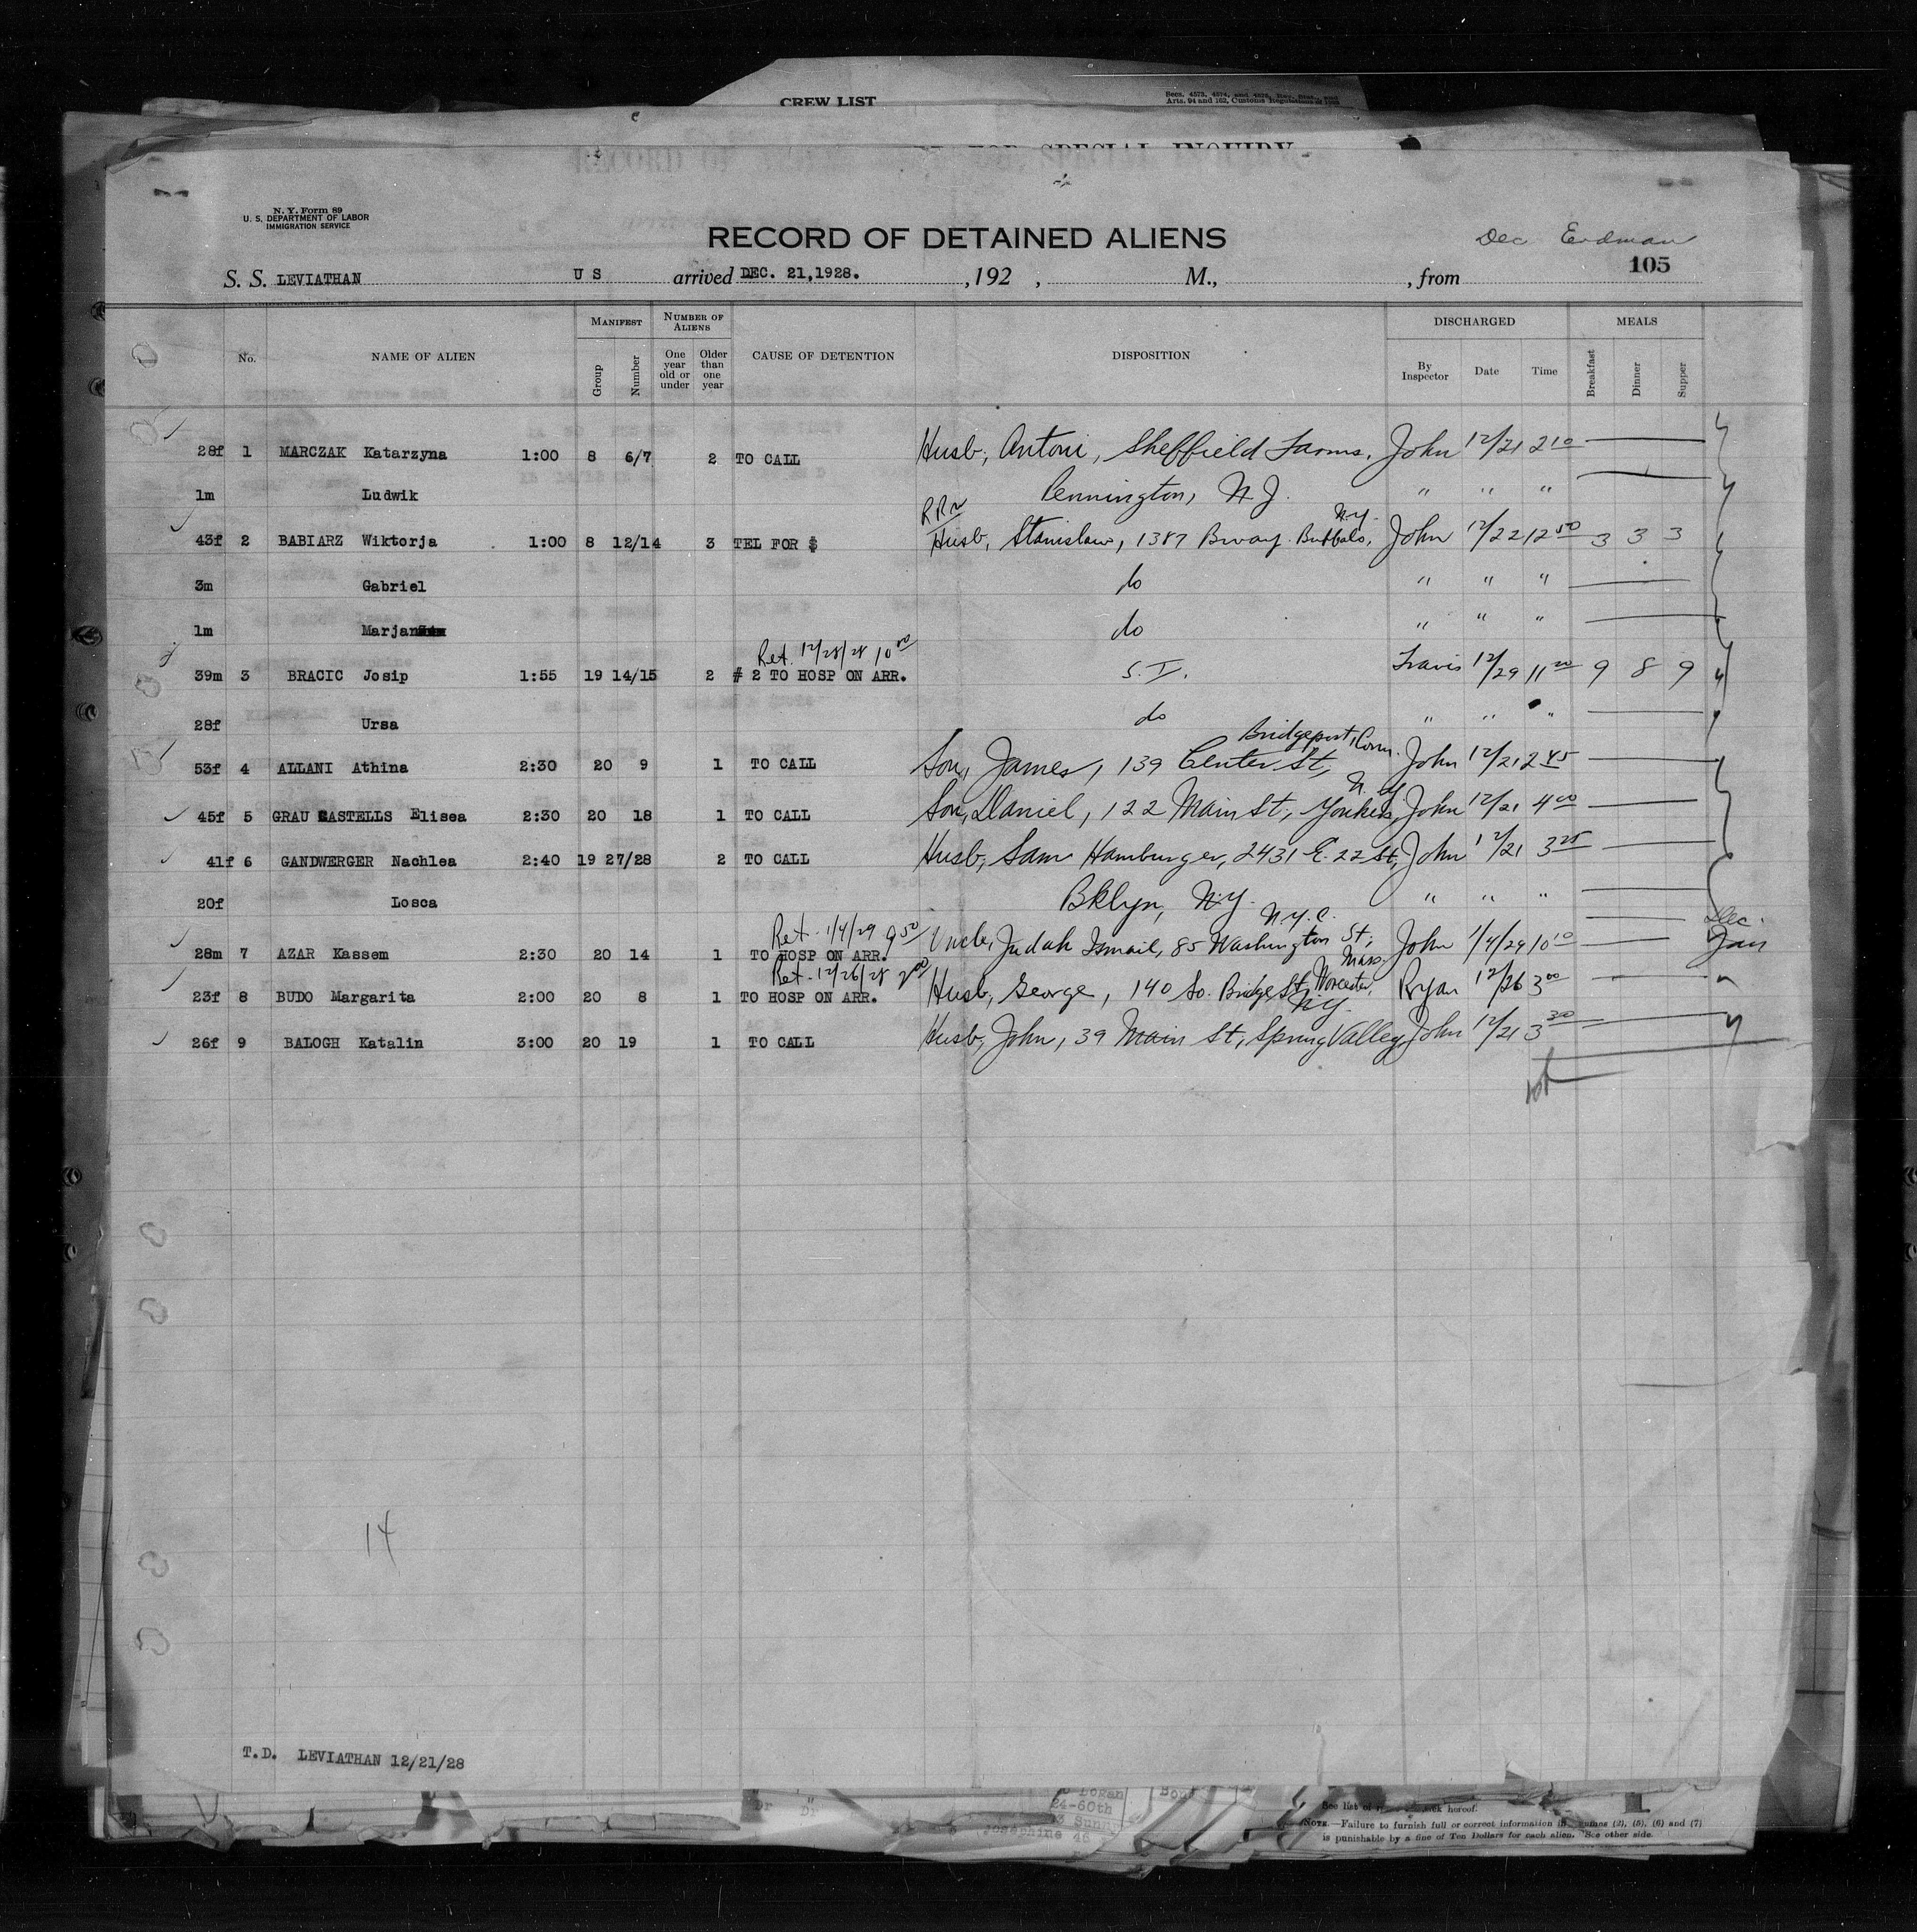 CREW LIST
N. Y. Form 89
U. S. DEPARTMENT OF LABOR
IMMIGRATION SERVICE
RECORD OF DETAINED ALIENS
Dec Erdman
105
S. S. LEVIATHAN U S arrived DEC. 21,1928. , 192 , M., , from
No. NAME OF ALIEN MANIFEST Group Number NUMBER OF ALIENS One year old or under Older than one year CAUSE OF DETENTION DISPOSITION DISCHARGED By Inspector Date Time MEALS Breakfast Dinner Supper
28f 1 MARCZAK Katarzyna 1:00 8 6/7 2 TO CALL Husb, Antoni, Sheffield Farms, John 12/21 2 10
1m Ludwik Pennington, N.J. " " "
43f 2 BABIARZ Wiktorja 1:00 8 12/14 3 TEL FOR $ Husb, Stanislaw, 1387 Bway. Buffalo, N.Y. John 12/22 12 50 3 3 3
3m Gabriel do " " "
1m Marjan do " " "
Ret. 12/28/28 10 00
39m 3 BRACIC Josip 1:55 19 14/15 2 # 2 TO HOSP ON ARR. S.I. Travis 12/29 11 20 9 8 9
28f Ursa do " " "
53f 4 ALLANI Athina 2:30 20 9 1 TO CALL Son, James, 139 Center St, Bridgeport, Conn. John 12/21 2 45
45f 5 GRAU CASTELLS Elisea 2:30 20 18 1 TO CALL Son, Daniel, 122 Main St, Yonkers, N.Y. John 12/21 4 00
41f 6 GANDWERGER Nachlea 2:40 19 27/28 2 TO CALL Husb, Sam Hamburger, 2431 E. 22 St, John 12/21 3 25
20f Losca Bklyn, N.Y. " " "
Ret - 1/4/29 9 50
28m 7 AZAR Kassem 2:30 20 14 1 TO HOSP ON ARR. Uncle, Judah Ismail, 85 Washington St, N.Y.C. John 1/4/29 10 10 Dec. Jan
Ret - 12/26/28 2 00
23f 8 BUDO Margarita 2:00 20 8 1 TO HOSP ON ARR. Husb, George, 140 So. Bridge St, Worcester, Mass. Ryan 12/26 3 00
26f 9 BALOGH Katalin 3:00 20 19 1 TO CALL Husb, John, 39 Main St, Spring Valley N.Y. John 12/21 3 30
14
T.D. LEVIATHAN 12/21/28
24-60th
Josephine 46
NOTE.—Failure to furnish full or correct information in columns (2), (5), (6) and (7)
is punishable by a fine of Ten Dollars for each alien. See other side.